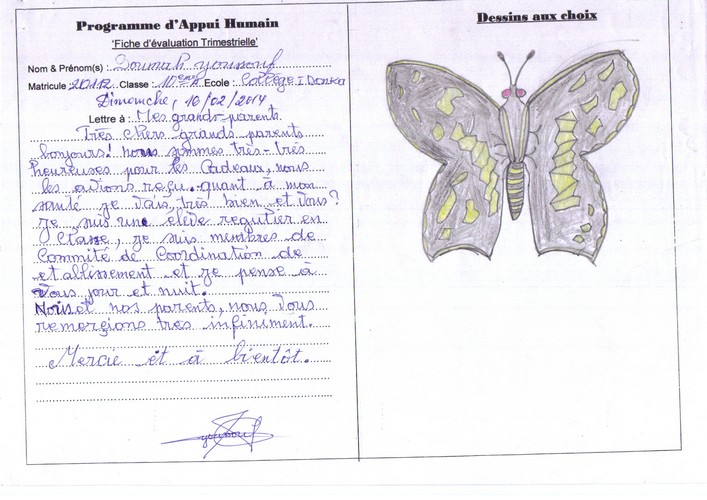 Programme d'Appui Humain
'Fiche d'évaluation Trimestrielle'
Nom & Prénom(s) : Soumah youssouf
Matricule : 20112 Classe : 10ème Ecole : Collège I Donka
Dimouche, 16/02/2014
Lettre à : Mes grands-parents.
Très chers grands parents
bonjours! nous sommes très-très
heureuses pour les Cadeaux, nous
les avions reçu. quant à mon
santé je vais très bien et vous?
je suis une élève regutier en
Classe, je suis membres de
Commité de Coordination de
etablissement et je pense à
Vous jour et nuit.
Nois et nos parents, nous vous
remerzions très infiniment.
Mercie et à bientôt.
Dessins aux choix